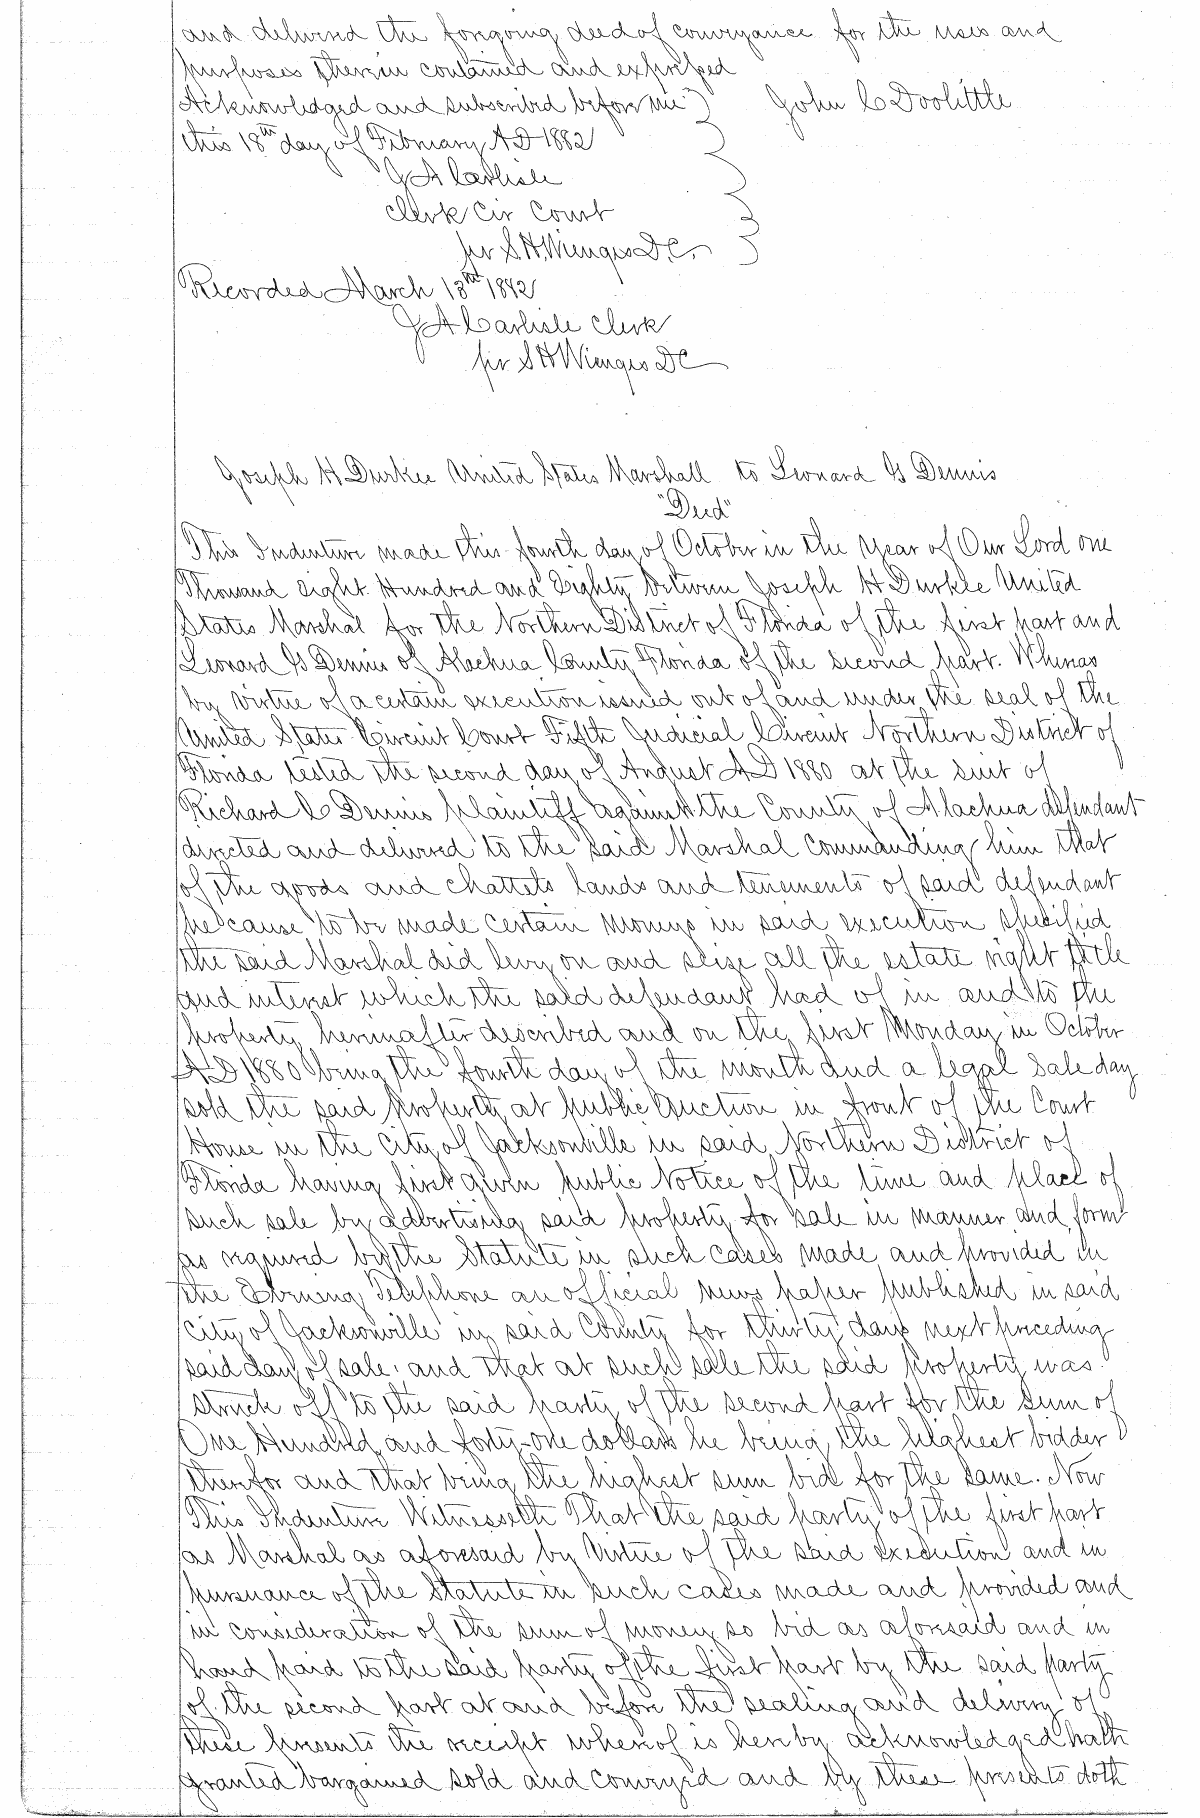 and delivered the forgoing deed of conveyance for the uses and
purposes therein contained and expressed
Acknowledged and subscribed before me John C Doolittle
this 18th day of February AD 1882
J A Carlisle
Clerk Cir Court
per S H Wienges D.C.
Recorded March 13th 1882
J A Carlisle Clerk
per S H Wienges DC
Joseph H Durkee United States Marshall to Leonard G Dennis
"Deed"
This Indenture made this fourth day of October in the Year of Our Lord one
Thousand eight Hundred and Eighty between Joseph H Durkee United
States Marshal for the Northern District of Florida of the first part and
Leonard G Dennis of Alachua County Florida of the second part. Whereas
by virtue of a certain execution issued out of and under the seal of the
United States Circuit Court Fifth Judicial Circuit Northern District of
Florida tested the second day of August AD 1880 at the suit of
Richard C Dennis plaintiff against the County of Alachua defendant
directed and delivered to the said Marshal commanding him that
of the goods and chattels lands and tenements of said defendant
he cause to be made certain moneys in said execution specified
the said Marshal did levy on and seize all the estate right title
and interest which the said defendant had of in and to the
property hereinafter described and on the first Monday in October
AD 1880 being the fourth day of the month and a legal sale day
sold the said property at public auction in front of the Court
House in the City of Jacksonville in said Northern District of
Florida having first given public Notice of the time and place of
such sale by advertising said property for sale in manner and form
as required by the Statute in such cases made and provided in
the Evening Telephone an official news paper published in said
City of Jacksonville in said County for thirty days next preceding
said day of sale. and that at such sale the said property was
struck off to the said party of the second part for the sum of
One Hundred and forty-one dollars he being the highest bidder
therefor and that being the highest sum bid for the same. Now
This Indenture Witnesseth That the said party of the first part
as Marshal as aforesaid by Virtue of the said execution and in
pursuance of the Statute in such cases made and provided and
in consideration of the sum of money so bid as aforesaid and in
hand paid to the said party of the first part by the said party
of the second part at and before the sealing and delivery of
these presents the receipt whereof is hereby acknowledged hath
granted bargained sold and conveyed and by these presents doth